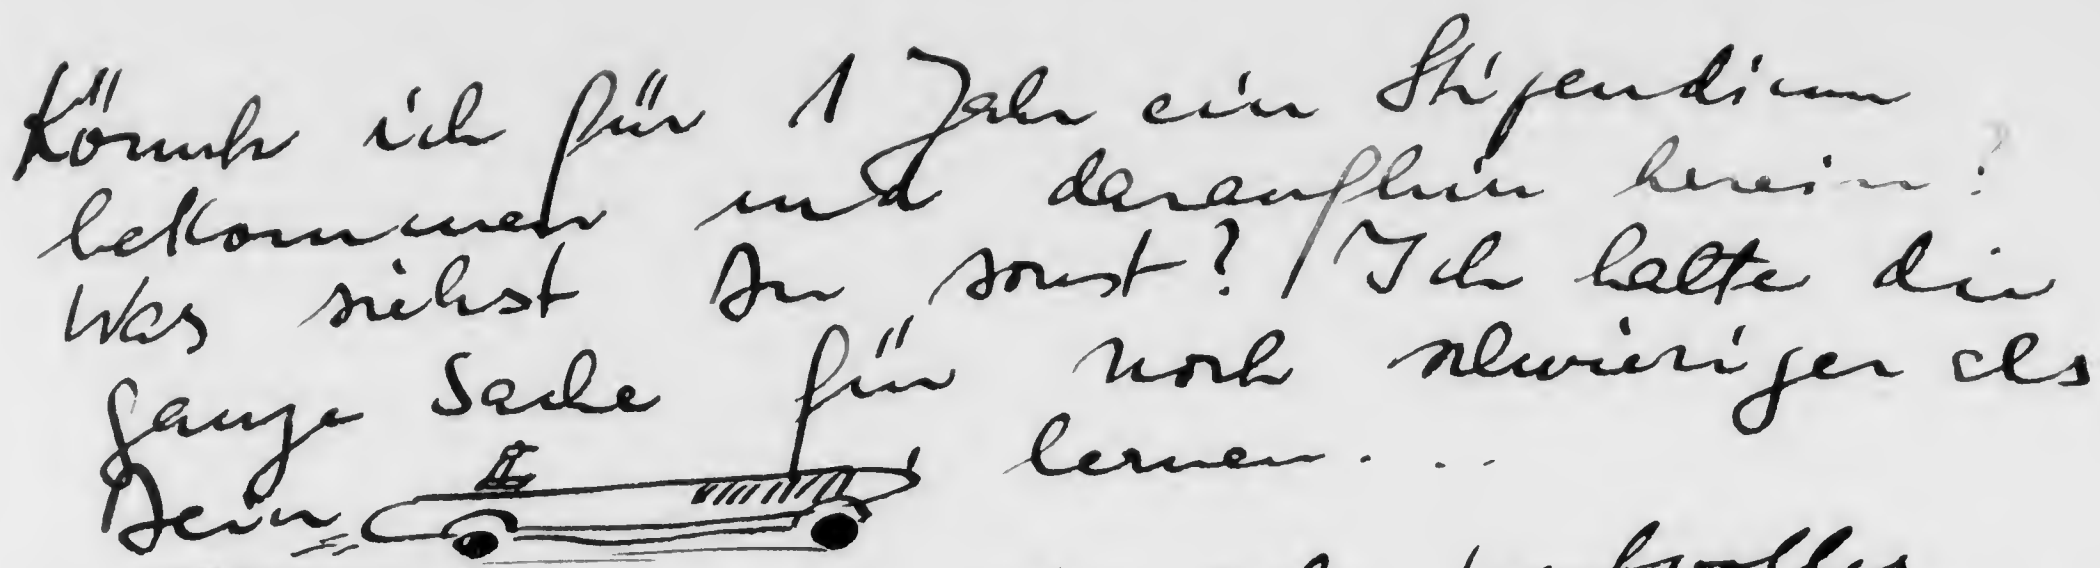 Könnte ich für 1 Jahr ein Stipendium
bekommen und daraufhin herein?
Was siehst Du sonst? / Ich halte die
ganze Sache für noch schwieriger als
Dein lernen....